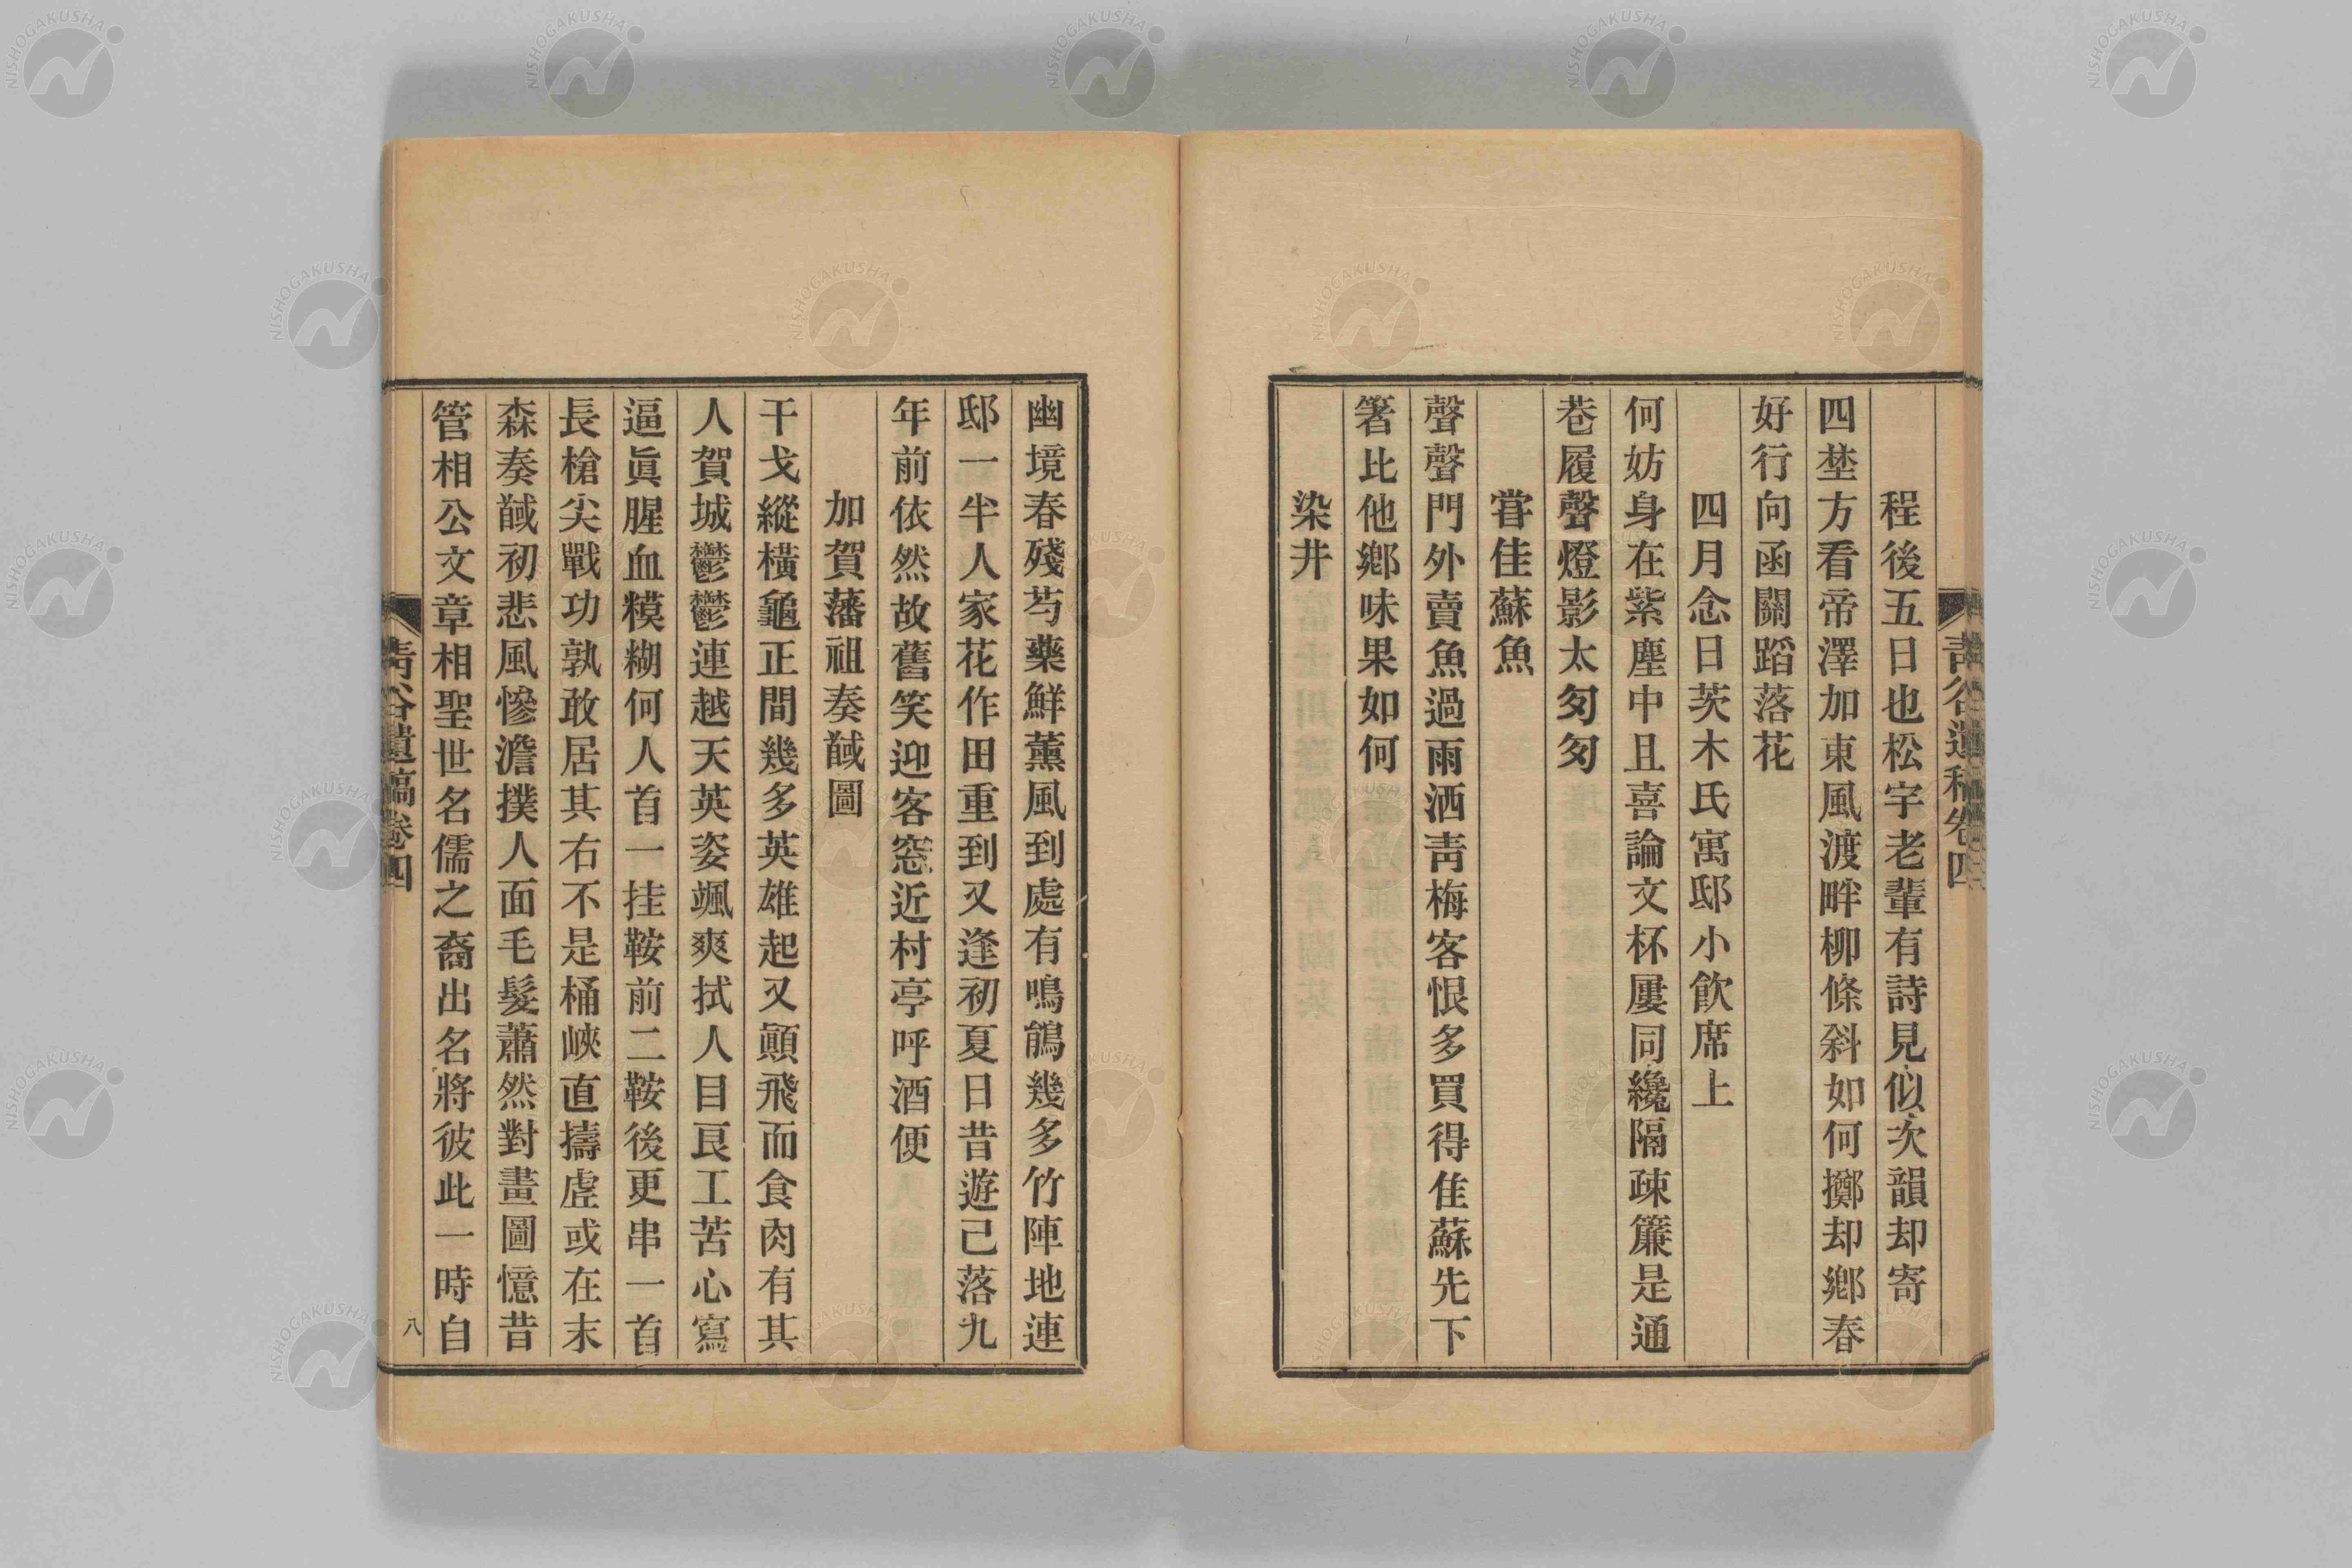 青谷遺稿卷四
程後五日也松宇老輩有詩見似次韻却寄
四埜方看帝澤加東風渡畔柳條斜如何擲却鄕春
好行向函關蹈落花
四月念日茨木氏寓邸小飮席上
何妨身在紫塵中且喜論文杯屢同纔隔疎簾是通
巷履聲燈影太匆匆
甞佳蘇魚
聲聲門外賣魚過雨洒靑梅客恨多買得佳蘇先下
箸比他鄕味果如何
染井
幽境春殘芍藥鮮薰風到處有鳴鵑幾多竹陣地連
邸一半人家花作田重到又逢初夏日昔遊已落九
年前依然故舊笑迎客窓近村亭呼酒便
加賀藩祖奏馘圖
干戈縱橫龜正間幾多英雄起又顚飛而食肉有其
人賀城鬱鬱連越天英姿颯爽拭人目良工苦心寫
逼眞腥血糢糊何人首一挂鞍前二鞍後更串一首
長槍尖戰功孰敢居其右不是桶峽直擣虛或在末
森奏馘初悲風慘澹撲人面毛髮蕭然對畫圖憶昔
管相公文章相聖世名儒之裔出名將彼此一時自
青谷遺稿卷四
八
NISHOGAKUSHA